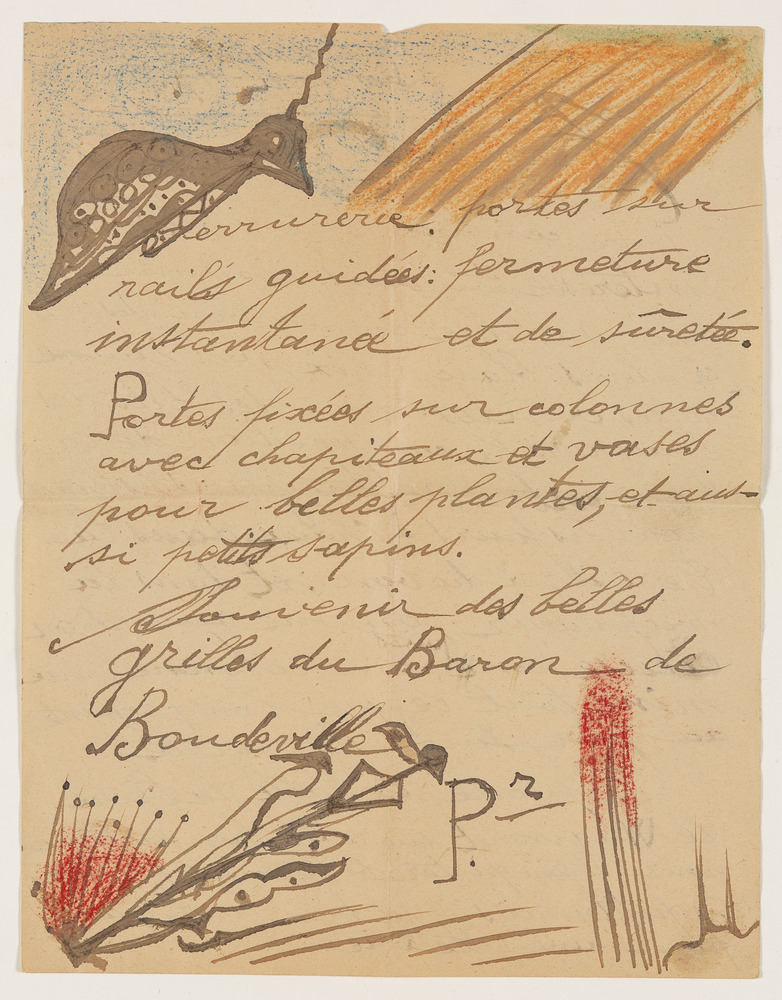 Serrurerie: portes sur
rails guidées: fermeture
instantané et de sûreté.
Portes fixées sur colonnes
avec chapiteaux et vases
pour belles plantes, et aus-
si petits sapins.
Souvenir des belles
grilles du Baron de
Boudeville
Pr